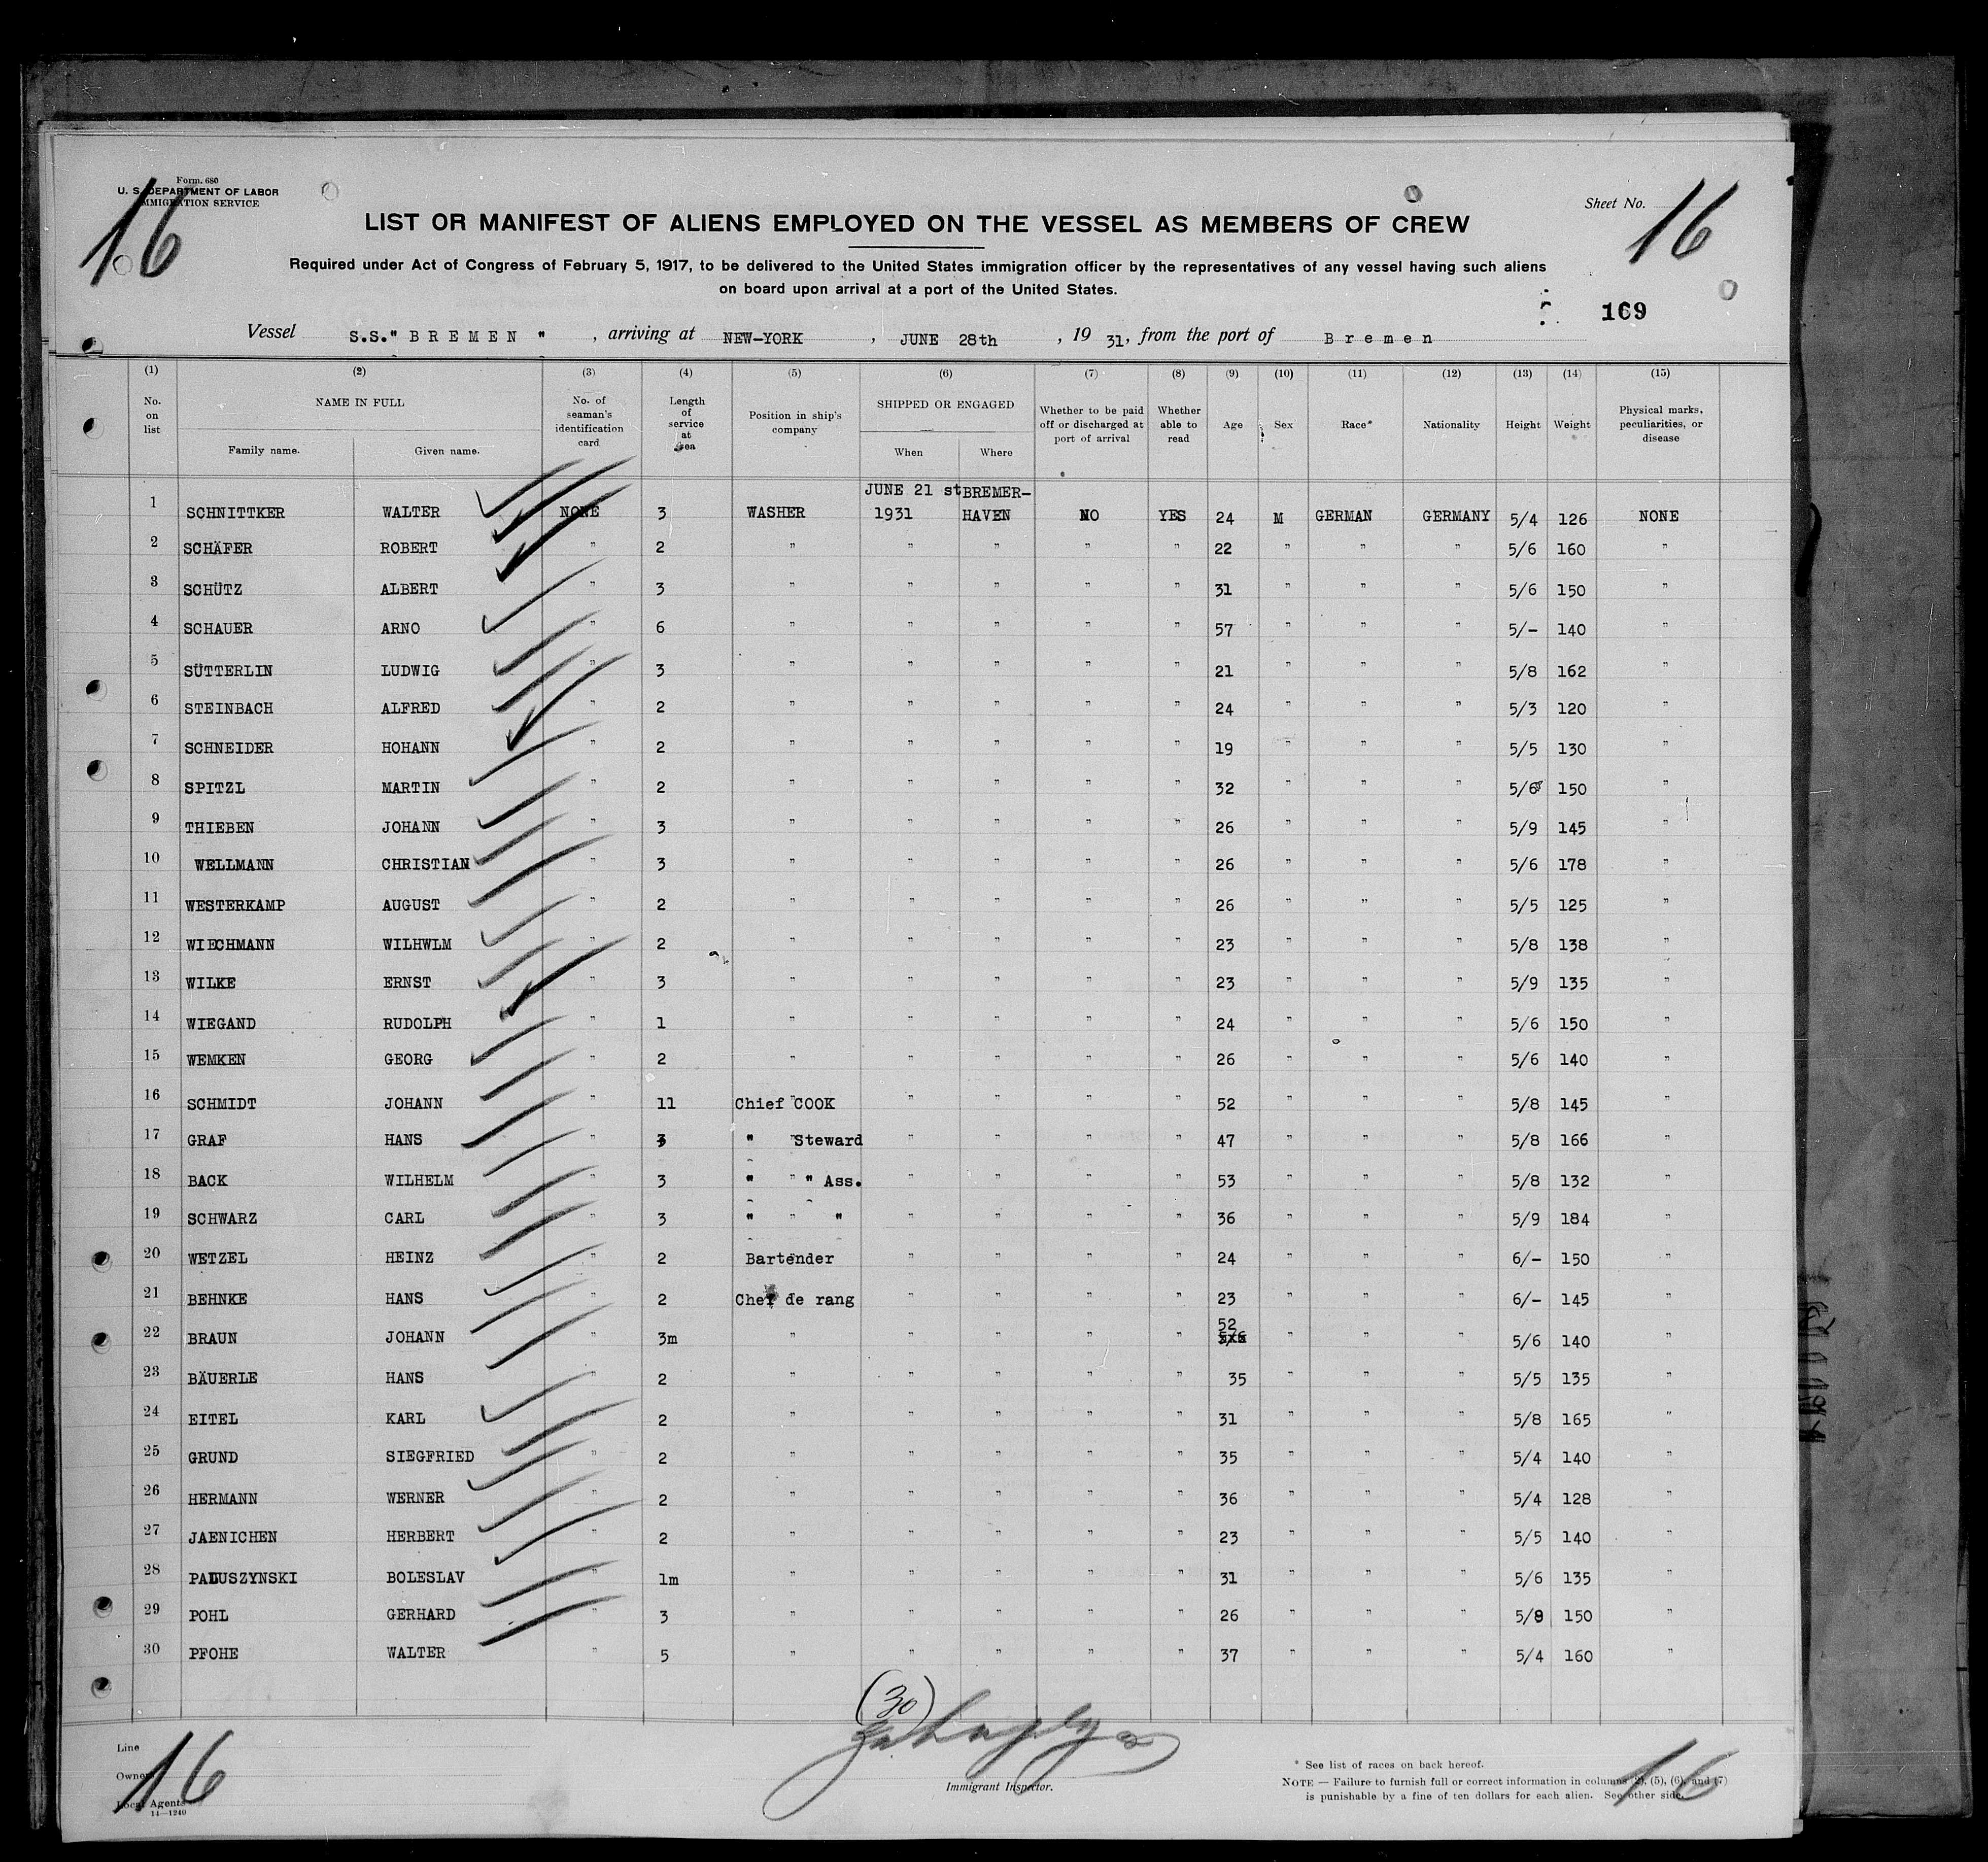 Form. 680
U. S. DEPARTMENT OF LABOR
IMMIGRATION SERVICE
16
Sheet No. 16
LIST OR MANIFEST OF ALIENS EMPLOYED ON THE VESSEL AS MEMBERS OF CREW
Required under Act of Congress of February 5, 1917, to be delivered to the United States immigration officer by the representatives of any vessel having such aliens
on board upon arrival at a port of the United States.
169
Vessel S.S." B R E M E N " , arriving at NEW-YORK , JUNE 28th , 19 31, from the port of B r e m e n
(1) (2) (3) (4) (5) (6) (7) (8) (9) (10) (11) (12) (13) (14) (15)
No. on list NAME IN FULL Family name. Given name. No. of seaman's identification card Length of service at sea Position in ship's company SHIPPED OR ENGAGED When Where Whether to be paid off or discharged at port of arrival Whether able to read Age Sex Race* Nationality Height Weight Physical marks, peculiarities, or disease
JUNE 21 st BREMER-
1 SCHNITTKER WALTER NONE 3 WASHER 1931 HAVEN NO YES 24 M GERMAN GERMANY 5/4 126 NONE
2 SCHÄFER ROBERT " 2 " " " " " 22 " " " 5/6 160 "
3 SCHÜTZ ALBERT " 3 " " " " " 31 " " " 5/6 150 "
4 SCHAUER ARNO " 6 " " " " " 57 " " " 5/- 140 "
5 SÜTTERLIN LUDWIG " 3 " " " " " 21 " " " 5/8 162 "
6 STEINBACH ALFRED " 2 " " " " " 24 " " " 5/3 120 "
7 SCHNEIDER HOHANN " 2 " " " " " 19 " " " 5/5 130 "
8 SPITZL MARTIN " 2 " " " " " 32 " " " 5/6 150 "
9 THIEBEN JOHANN " 3 " " " " " 26 " " " 5/9 145 "
10 WELLMANN CHRISTIAN " 3 " " " " " 26 " " " 5/6 178 "
11 WESTERKAMP AUGUST " 2 " " " " " 26 " " " 5/5 125 "
12 WIECHMANN WILHWLM " 2 " " " " " 23 " " " 5/8 138 "
13 WILKE ERNST " 3 " " " " " 23 " " " 5/9 135 "
14 WIEGAND RUDOLPH " 1 " " " " " 24 " " " 5/6 150 "
15 WEMKEN GEORG " 2 " " " " " 26 " " " 5/6 140 "
16 SCHMIDT JOHANN " 11 Chief COOK " " " " 52 " " " 5/8 145 "
17 GRAF HANS " 3 " Steward " " " " 47 " " " 5/8 166 "
18 BACK WILHELM " 3 " " Ass. " " " " 53 " " " 5/8 132 "
19 SCHWARZ CARL " 3 " " " " " " " 36 " " " 5/9 184 "
20 WETZEL HEINZ " 2 Bartender " " " " 24 " " " 6/- 150 "
21 BEHNKE HANS " 2 Chef de rang " " " " 23 " " " 6/- 145 "
22 BRAUN JOHANN " 3m " " " " " 52 " " " 5/6 140 "
23 BÄUERLE HANS " 2 " " " " " 35 " " " 5/5 135 "
24 EITEL KARL " 2 " " " " " 31 " " " 5/8 165 "
25 GRUND SIEGFRIED " 2 " " " " " 35 " " " 5/4 140 "
26 HERMANN WERNER " 2 " " " " " 36 " " " 5/4 128 "
27 JAENICHEN HERBERT " 2 " " " " " 23 " " " 5/5 140 "
28 PALUSZYNSKI BOLESLAV " 1m " " " " " 31 " " " 5/6 135 "
29 POHL GERHARD " 3 " " " " " 26 " " " 5/8 150 "
30 PFOHE WALTER " 5 " " " " " 37 " " " 5/4 160 "
(30)
Line
Owners
Local Agents
14—1240
16
Immigrant Inspector.
* See list of races on back hereof.
NOTE — Failure to furnish full or correct information in columns (2), (5), (6), and (7)
is punishable by a fine of ten dollars for each alien. See other side.
16